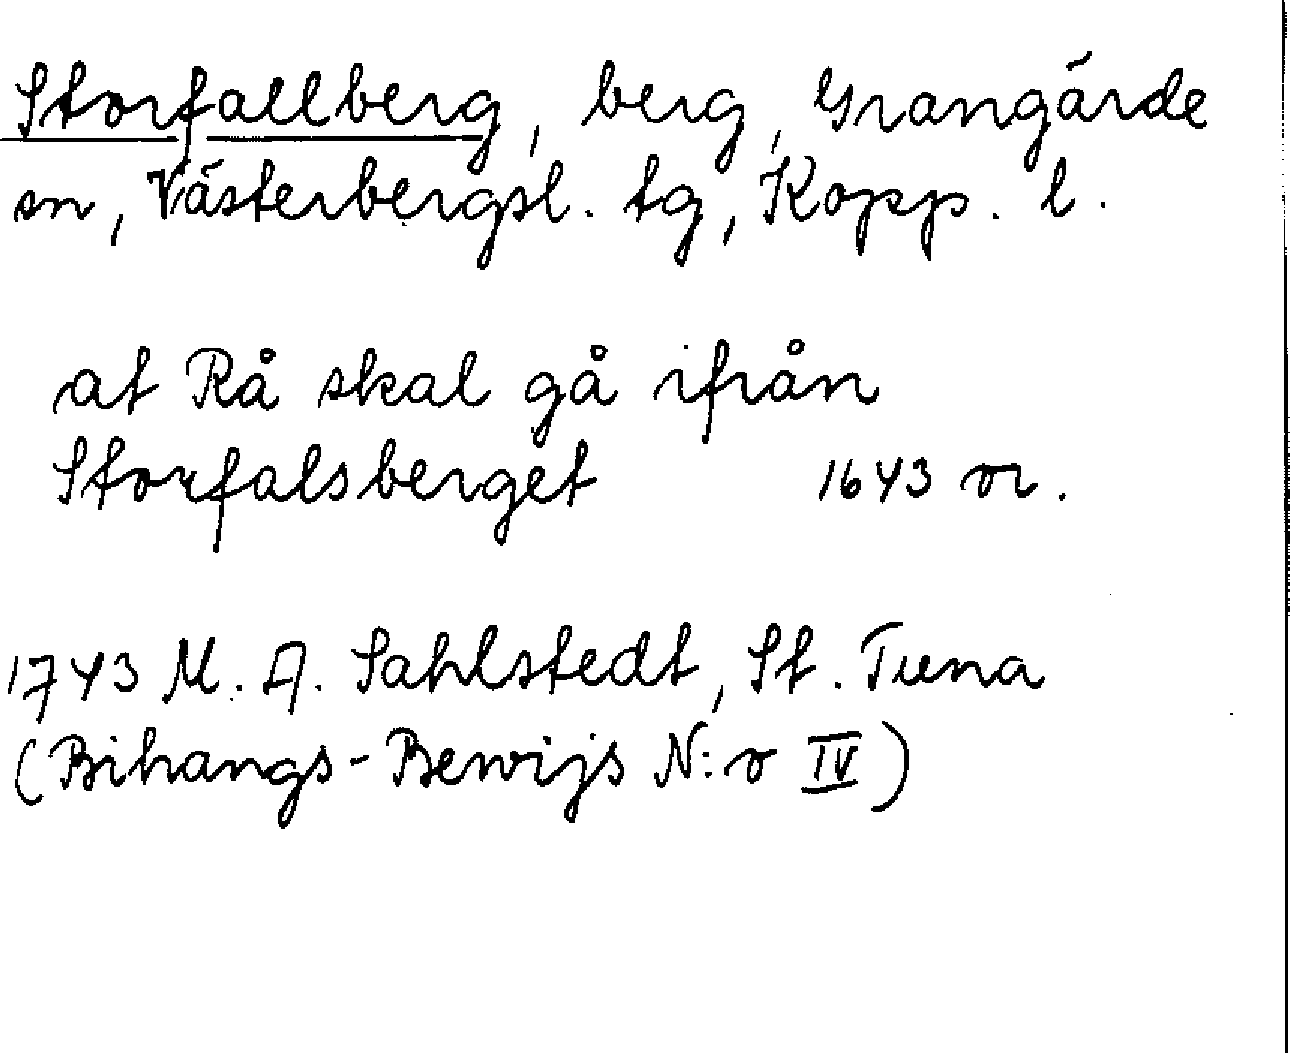 Storfallberg, berg, Grangärde
sn, Västerbergsl. tg, Kopp. l.
at Rå skal gå ifrån
Storfalsberget 1643 or.
1743 M. A. Sahlstedt, St. Tuna
(Bihangs-Bewijs N:o IV)